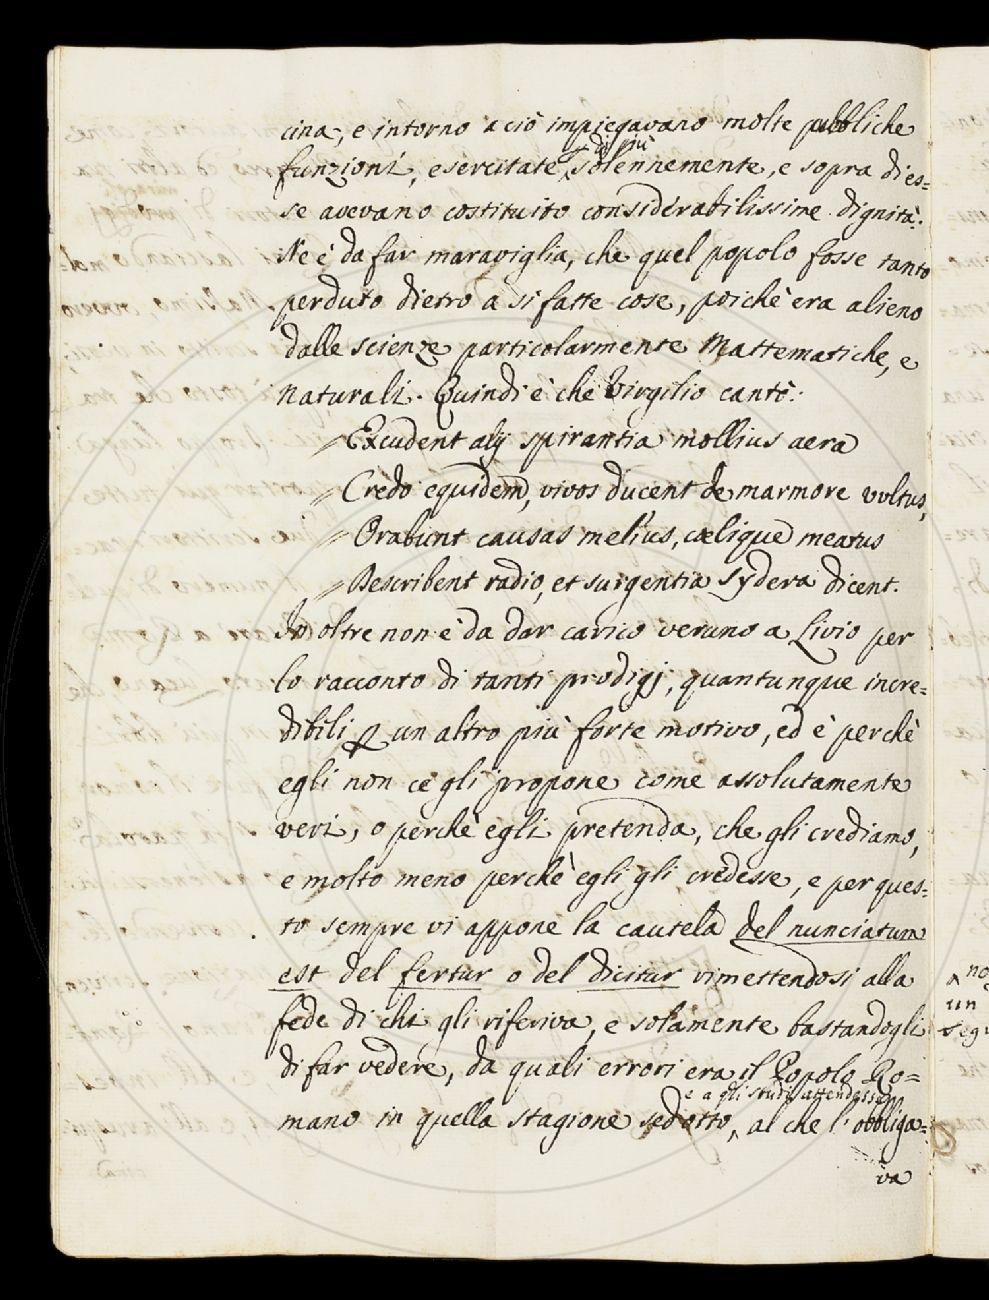 cina, e intorno a ciò impiegavano molte pubbliche
di più
funzioni, esercitate solennemente, e sopra di es=
se avevano costituito considerabilissime dignità.
Ne è da far maraviglia, che quel popolo fosse tanto
perduto dietro a si fatte cose, poichè era alieno
dalle scienze particolarmente Mattematiche, e
naturali. Quindi è che Virgilio cantò:
Excudent alij spirantia mollius aera
Credo equidem, vivos ducent de marmore vultus,
Orabunt causas melius, coelique meatus
Describent radio, et surgentia sydera dicent.
In oltre non è da dar carico veruno a Livio per
lo racconto di tanti prodigj, quantunque incre=
dibili un altro più forte motivo, ed è perchè
egli non ce gli propone come assolutamente
veri, o perchè egli pretenda, che gli crediamo,
e molto meno perchè egli gli credesse, e per ques=
to sempre vi appone la cautela del nunciatum
est del fertur o del dicitur rimettendosi alla
fede di chi gli riferiva, e solamente bastandogli
di far vedere, da quali errori era il Popolo Ro=
e a gli studi attendesse
mano in quella stagione sedotto, al che l'obbliga=
va
un